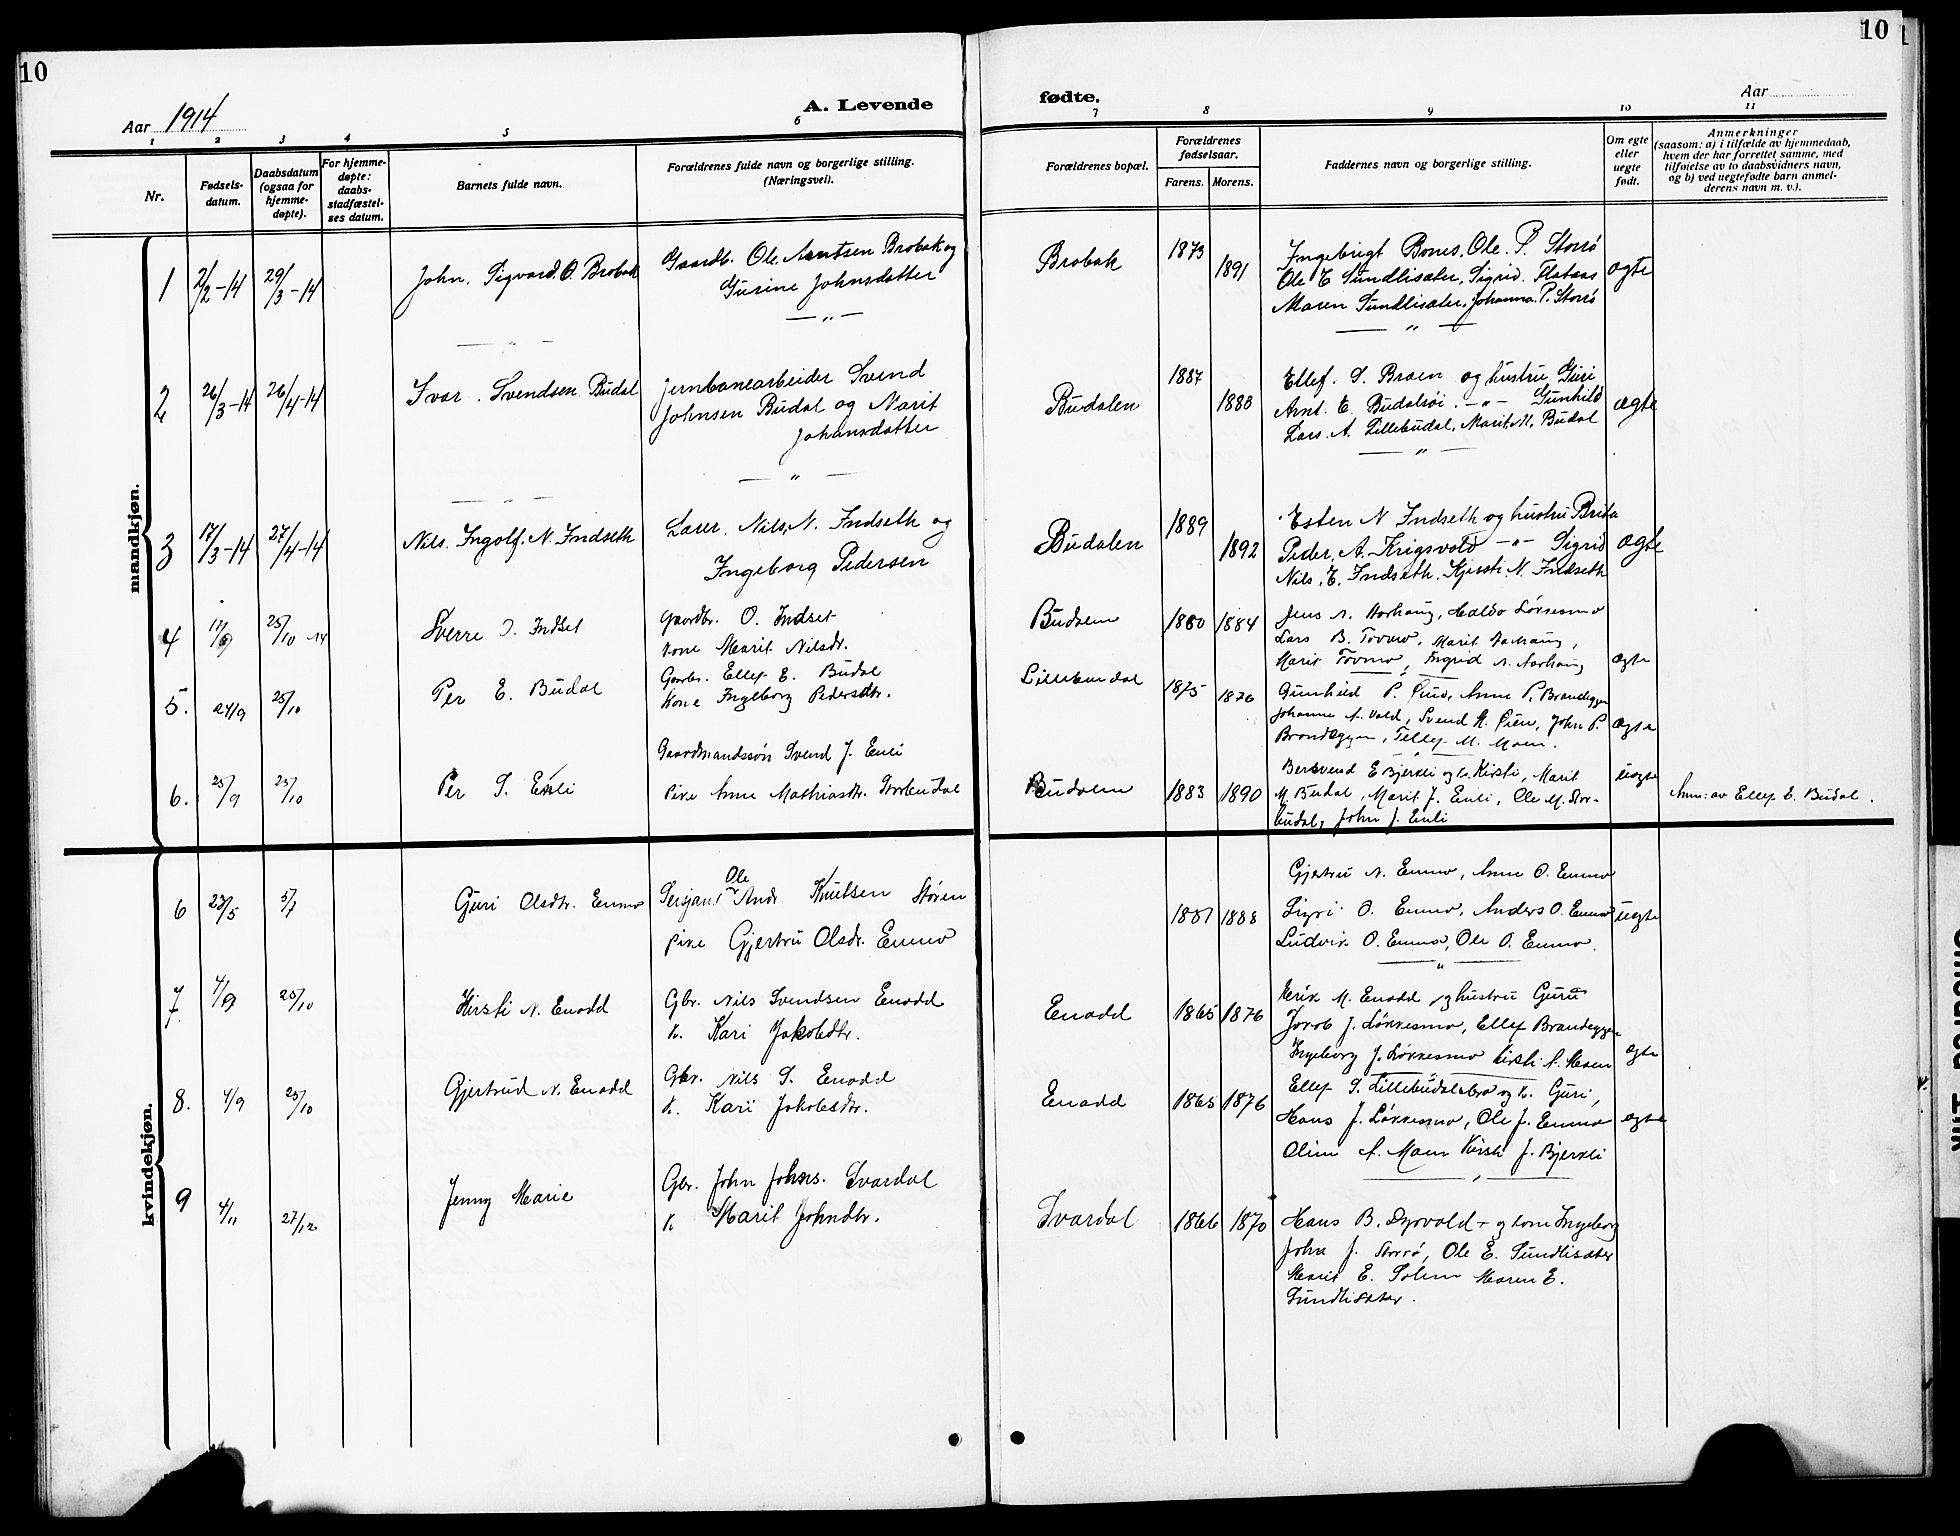 10
10
Aar 1914
A. Levende
fødte.
Aar
1 2 3 4 5 6 7 8 9 10 11
Nr.
Fødsels-
datum.
Daabsdatum
(ogsaa for
hjemme-
døpte).
For hjemme-
døpte:
daabs-
stadfæstel-
ses datum.
Barnets fulde navn.
Forældrenes fulde navn og borgerlige stilling.
(Næringsvei).
Forældrenes bopæl.
Forældrenes
fødselsaar.
Farens. Morens.
Faddernes navn og borgerlige stilling.
Om egte
eller
uegte
født.
Anmerkninger
(saasom: a) i tilfælde av hjemmedaab,
hvem der har forrettet samme, med
tilføielse av to daabsvidners navn,
og b) ved uegtefødte barn anmel-
derens navn m. v.).
mandkjøn.
1 2/2-14 29/3-14 John. Sigvard. O. Brobak
Gaardb. Ole Arntsen Brobak og
Gurine Johnsdatter
Brobak 1873 1891
Ingebrigt Bones, Ole. P. Storrø
Ole E Sundlisæter, Sigrid. Flataas
Maren Sundlisæter, Johanna. P. Storrø
ægte
2 26/3-14 26/4-14 Ivar. Svendsen Budal
Jernbanearbeider Svend
Johnsen Budal og Marit
Johansdatter
Budalen 1887 1888
Ellef. S. Braen og hustru Guri
Arnt. E. Budalsøi. -"- Gunhild
Lars. A. Lillebudal, Marit. M. Budal
ægte
3 17/3-14 27/4-14 Nils. Ingolf. N. Indseth
Lærer. Nils. N. Indseth og
Ingeborg Pedersen
Budalen 1889 1892
Esten N Indseth og hustru Brita
Peder. A. Krigsvold -"- Sigrid
Nils. E. Indseth. Kjersti. N. Indseth
ægte
4 11/9 25/10 14 Sverre O. Indset
Gaardbr. O. Indset
kone Marit Nilsdr.
Budalen 1880 1884
Jens A. Aarhaug, Haldo Løkkesmo
Lars B. Tovmo, Marit Aarhaug,
Marit Tovmo, Ingrid A. Aarhaug
ægte
5. 24/9 25/10 Per E. Budal
Gaardbr. Ellef E. Budal
Kone Ingeborg Pedersdtr.
Lillebudal 1875 1876
Gunhild P. Øien, Anne P. Brandeggen
Johanne A. Vold, Svend A. Øien, John P.
Brandeggen, Tellef M. Moen.
ægte
6. 25/9 25/10 Per S. Enli
Gaardmandssøn Svend J. Enli
Pike Anne Mathiasdtr. Storbudal
Budalen 1883 1890
Bersvend E Bjerkli og k. Kirsti, Marit
M. Budal, Marit J. Enli, Ole M. Stor-
budal, John J. Enli
uegte
Anm: av Ellef E. Budal.
kvindekjøn.
6 23/5 5/7 Guri Olsdtr. Enmo
Ole
Sersjant Andr. Knutsen Støren
pike Gjertru Olsdr. Enmo
1887 1888
Gjertru N. Enmo, Anne O. Enmo
Sigri O. Enmo, Anders O. Enmo
Ludvik O. Enmo, Ole O. Enmo.
uegte
7. 4/9 25/10 Kirsti N. Enodd
Gbr. Nils Svendsen Enodd
k. Kari Jakobdtr.
Enodd 1865 1876
Erik M. Enodd og hustru Guru
Jacob J. Løkkesmo, Ellef Brandeggen
Ingeborg J. Løkkesmo Kirsti A. Moen
ægte
8. 4/9 25/10 Gjertrud N. Enodd
Gbr. Nils S. Enodd
k. Kari Jakobsdtr.
Enodd 1865 1876
Ellef S. Lillebudalsbro og k. Guri,
Hans J. Løkkesmo, Ole J. Enmo
Oline A. Moen Kirsti J. Bjerkli
ægte
9 4/11 27/12 Jenny Marie
Gbr. John Johns. Svardal
k Marit Johndtr.
Svardal 1866 1870
Hans B. Dyrvold og kone Ingeborg
John J. Storrø, Ole E. Sundlisæter
Marit E. Solem Maren E.
Sundlisæter.